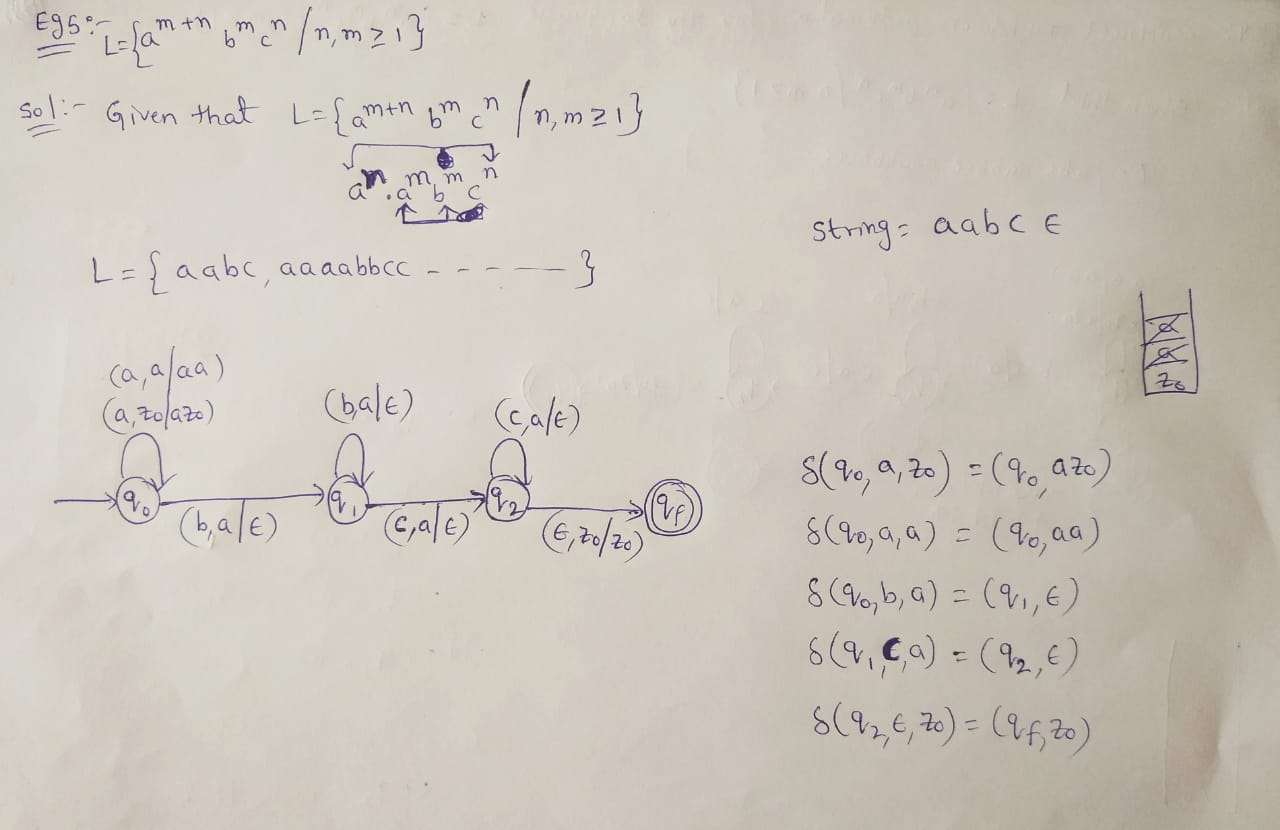 Eg5:- L={a^m+n b^m c^n / n,m ≥ 1}
Sol:- Given that L={a^m+n b^m c^n / n,m ≥ 1}
a^n . a^m b^m c^n
L = { aabc, aaaabbcc ------ }
string = aabc ϵ
a
a
z0
(a,a/aa)
(a,z0/az0)
(b,a/ϵ)
(c,a/ϵ)
q0
q1
q2
qf
(b,a/ϵ)
(c,a/ϵ)
(ϵ,z0/z0)
δ(q0,a,z0) = (q0,az0)
δ(q0,a,a) = (q0,aa)
δ(q0,b,a) = (q1,ϵ)
δ(q1,c,a) = (q2,ϵ)
δ(q2,ϵ,z0) = (qf,z0)